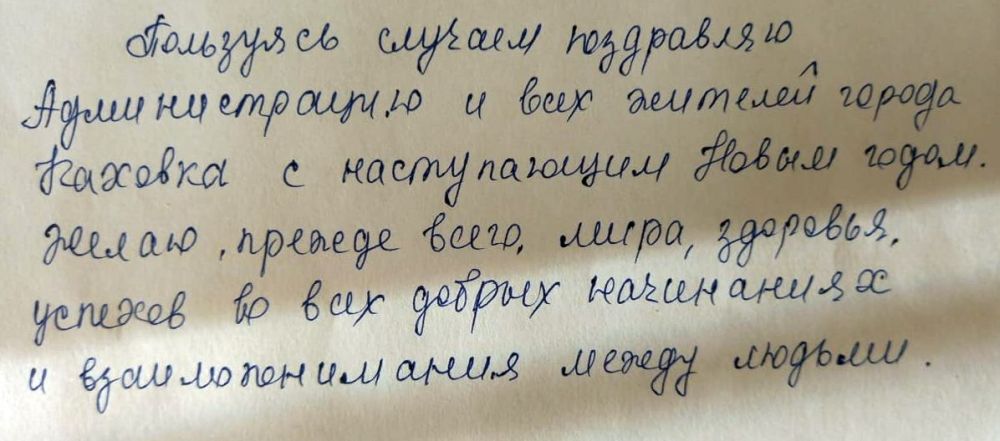 Пользуясь случаем поздравляю
Администрацию и всех жителей города
Каховка с наступающим Новым годом.
Желаю, прежде всего, мира, здоровья,
успехов во всех добрых начинаниях
и взаимопонимания между людьми.